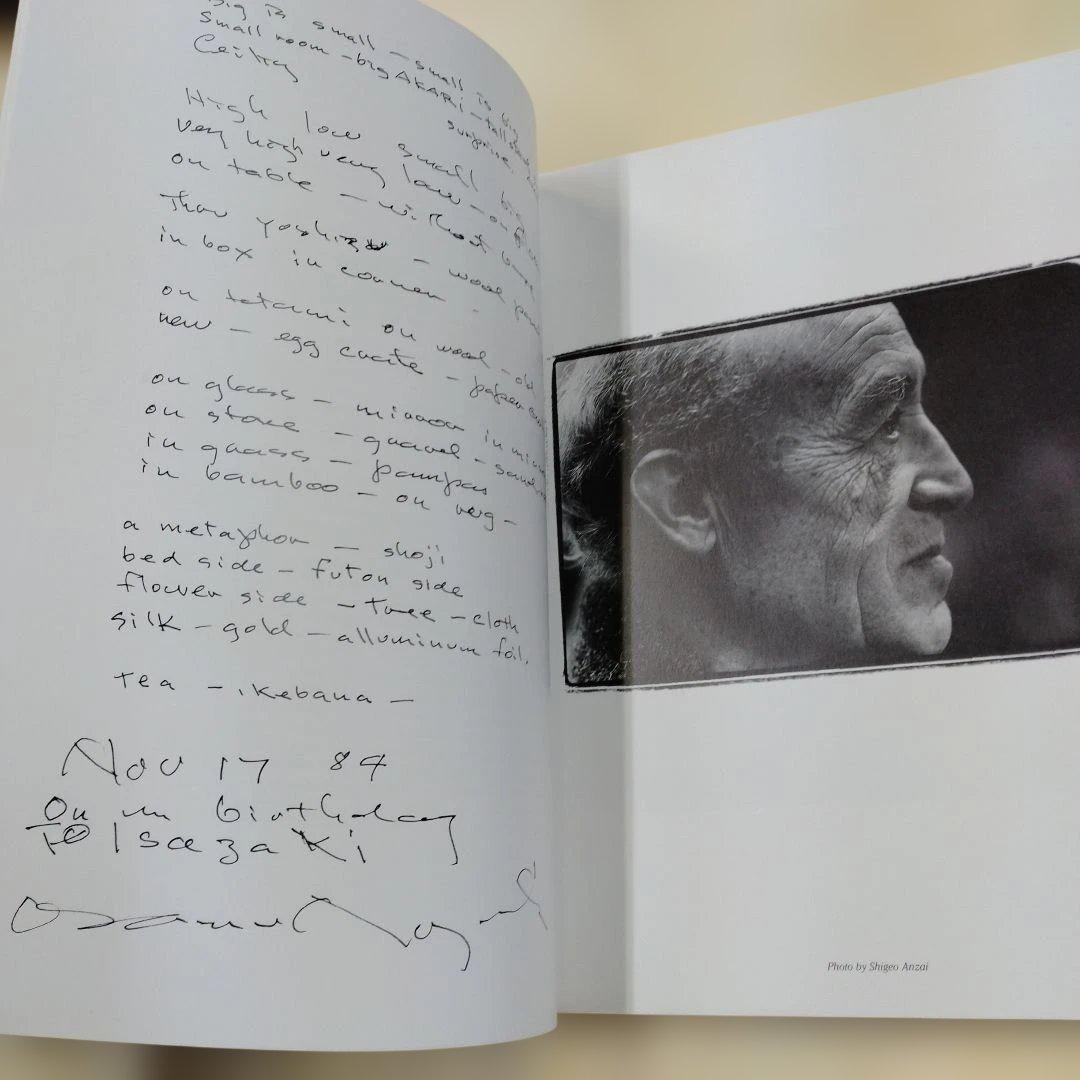 Big is small — small is big
small room – big AKARI – tall
Ceiling surprise.
High low small big
very high very low – on
on table – without
Thou – wood
in box in corner -
on tatami on wood – old
new – egg crate – paper
on glass – mirror in
on stone – gravel – sand
in grass – pampas
in bamboo – on
a metaphor — shoji
bed side – futon side
flower side – tree – cloth
silk – gold – alluminum foil.
tea – ikebana –
Nov 17 84
On birthday
to Isozaki
Photo by Shigeo Anzai